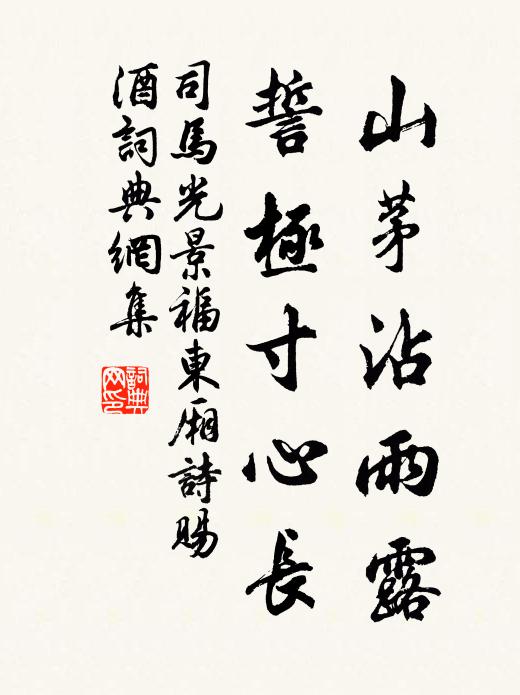 山茅沾雨露
誓極寸心長
司馬光景福東厢詩賜
酒詞典網集
詞典
网印